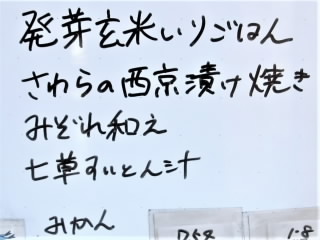 発芽玄米いりごはん
さわらの西京漬け焼き
みぞれ和え
七草すいとん汁
みかん